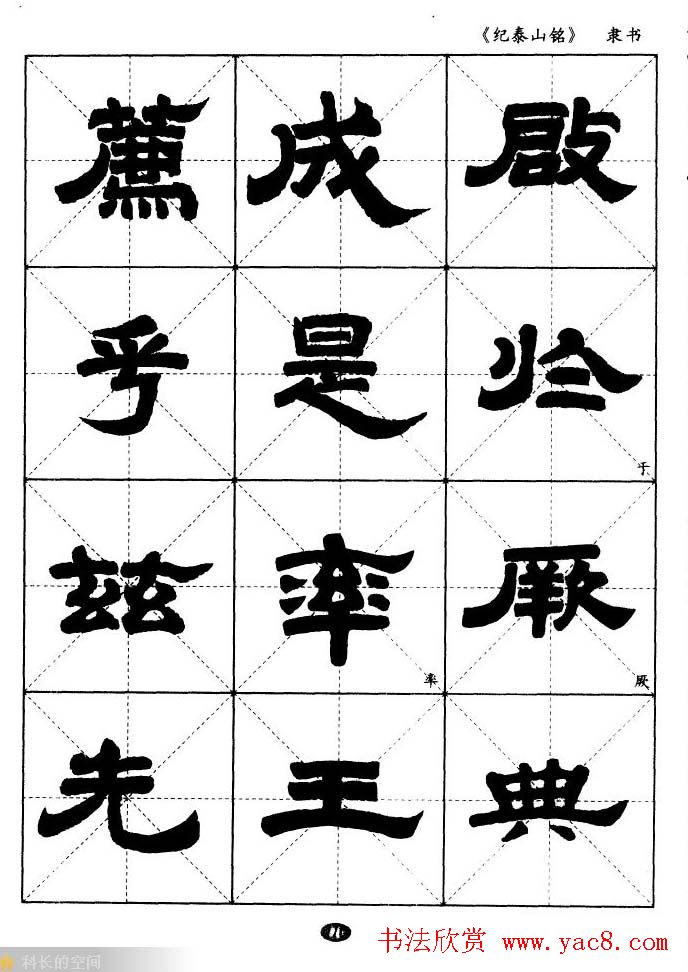 《纪泰山铭》 隶书
薦成啟
乎是於
于
兹率厥
率 厥
先王典
11
书法欣赏 www.yac8.com
科长的空间